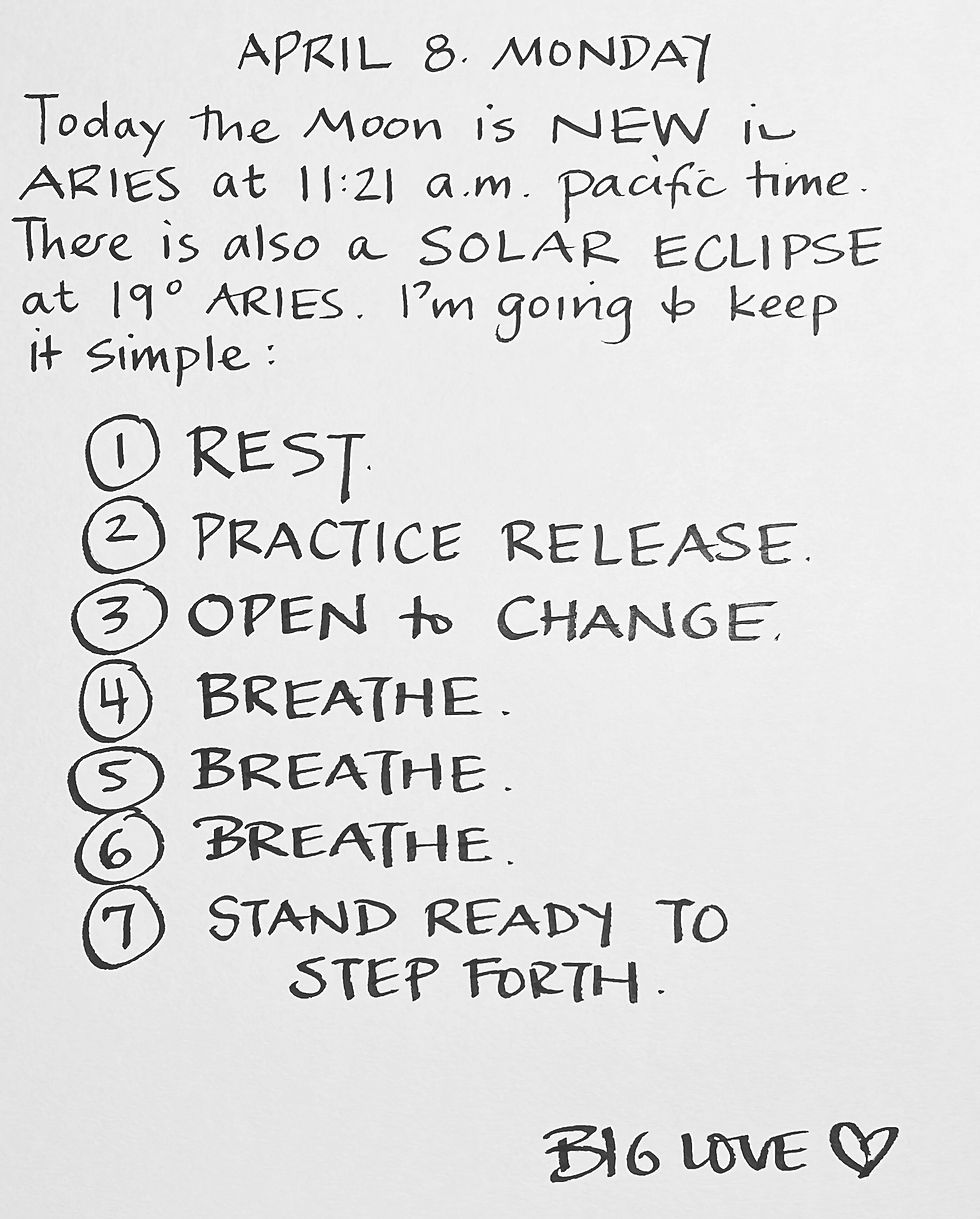 APRIL 8. MONDAY
Today the Moon is NEW in
ARIES at 11:21 a.m. pacific time.
There is also a SOLAR ECLIPSE
at 19° ARIES. I'm going to keep
it simple:
① REST.
② PRACTICE RELEASE.
③ OPEN to CHANGE.
④ BREATHE.
⑤ BREATHE.
⑥ BREATHE.
⑦ STAND READY TO
STEP FORTH.
BIG LOVE ♡